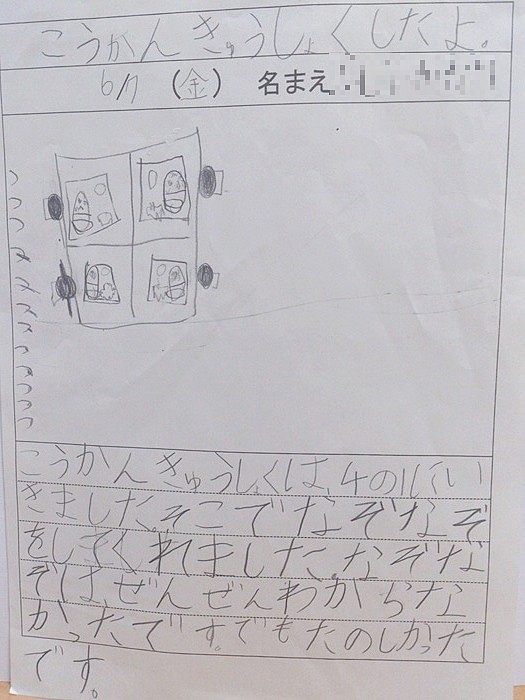 こうかんきゅうしょくしたよ。
6/7 (金) 名まえ
こうかんきゅうしょくは、4の1にい
きました。そこでなぞなぞ
をしてくれました。なぞな
ぞは、ぜんぜんわからな
かったです。でもたのしかった
です。